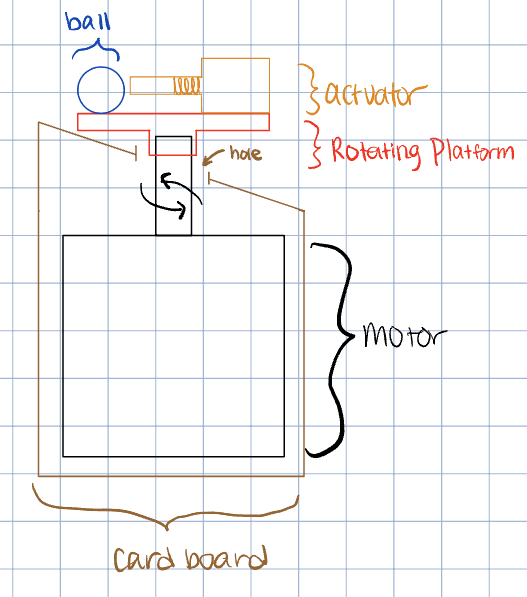 ball
actuator
hole
Rotating Platform
motor
Card board